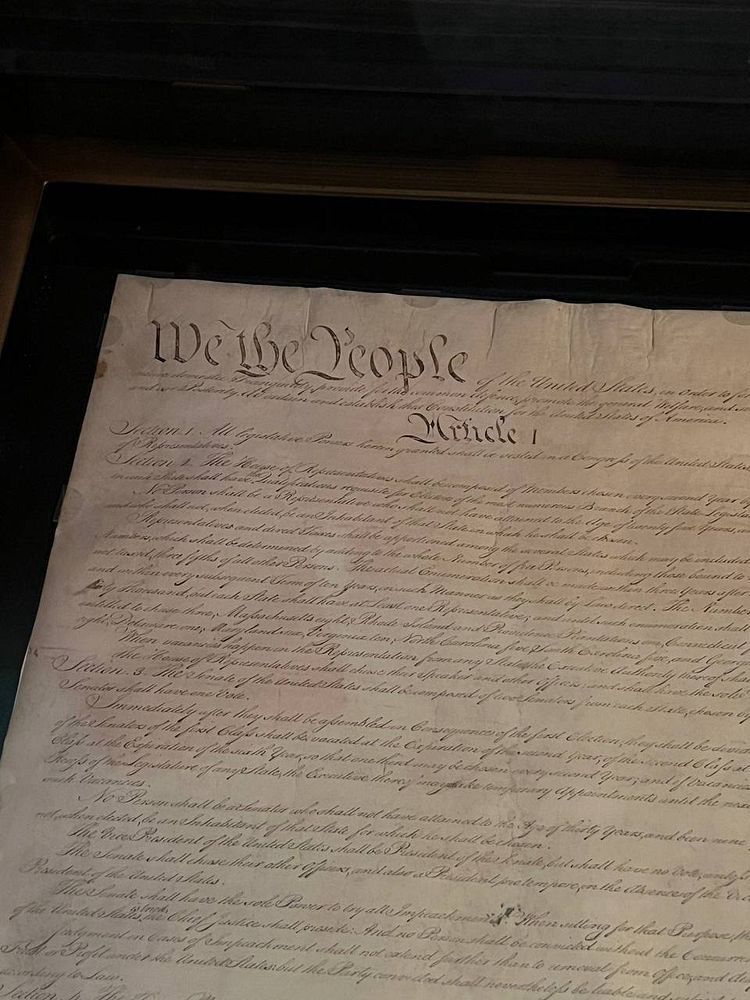 We the People of the United States, in Order to
insure domestic Tranquility, provide for the common defence, promote the general Welfare, and
and our Posterity, do ordain and establish this Constitution for the United States of America.
Article I
Section. 1. All legislative Powers herein granted shall be vested in a Congress of the United States
of Representatives.
Section. 2. The House of Representatives shall be composed of Members chosen every second Year
in each State shall have the Qualifications requisite for Electors of the most numerous Branch of the State
No Person shall be a Representative who shall not have attained to the Age of twenty five Years,
and who shall not, when elected, be an Inhabitant of that State in which he shall be chosen.
Representatives and direct Taxes shall be apportioned among the several States which may be included
Numbers, which shall be determined by adding to the whole Number of free Persons, including those bound to
not taxed, three fifths of all other Persons. The actual Enumeration shall be made within three Years after
and within every subsequent Term of ten Years, in such Manner as they shall by Law direct. The Number
thirty Thousand, but each State shall have at Least one Representative; and until such enumeration shall
entitled to chuse three, Massachusetts eight, Rhode Island and Providence Plantations one, Connecticut
eight, Delaware one, Maryland six, Virginia ten, North Carolina five, South Carolina five, and
When vacancies happen in the Representation from any State, the Executive Authority thereof
The House of Representatives shall chuse their Speaker and other Officers; and shall have the sole
Section. 3. The Senate of the United States shall be composed of two Senators from each State, chosen
Senator shall have one Vote.
Immediately after they shall be assembled in Consequence of the first Election, they shall be
of the Senators of the first Class shall be vacated at the Expiration of the second Year, of the second Class at
Class at the Expiration of the sixth Year, so that one third may be chosen every second Year; and if
Recess of the Legislature of any State, the Executive thereof may make temporary Appointments until the
such Vacancies.
No Person shall be a Senator who shall not have attained to the Age of thirty Years, and been nine
not, when elected, be an Inhabitant of that State for which he shall be chosen.
The Vice President of the United States shall be President of the Senate, but shall have no Vote, unless
The Senate shall chuse their other Officers, and also a President pro tempore, in the Absence of the
President of the United States.
The Senate shall have the sole Power to try all Impeachments. When sitting for that Purpose,
of the United States is tried, the Chief Justice shall preside: And no Person shall be convicted without the
Judgment in Cases of Impeachment shall not extend further than to removal from Office, and
Trust or Profit under the United States: but the Party convicted shall nevertheless be liable
according to Law.
Section. 4. The